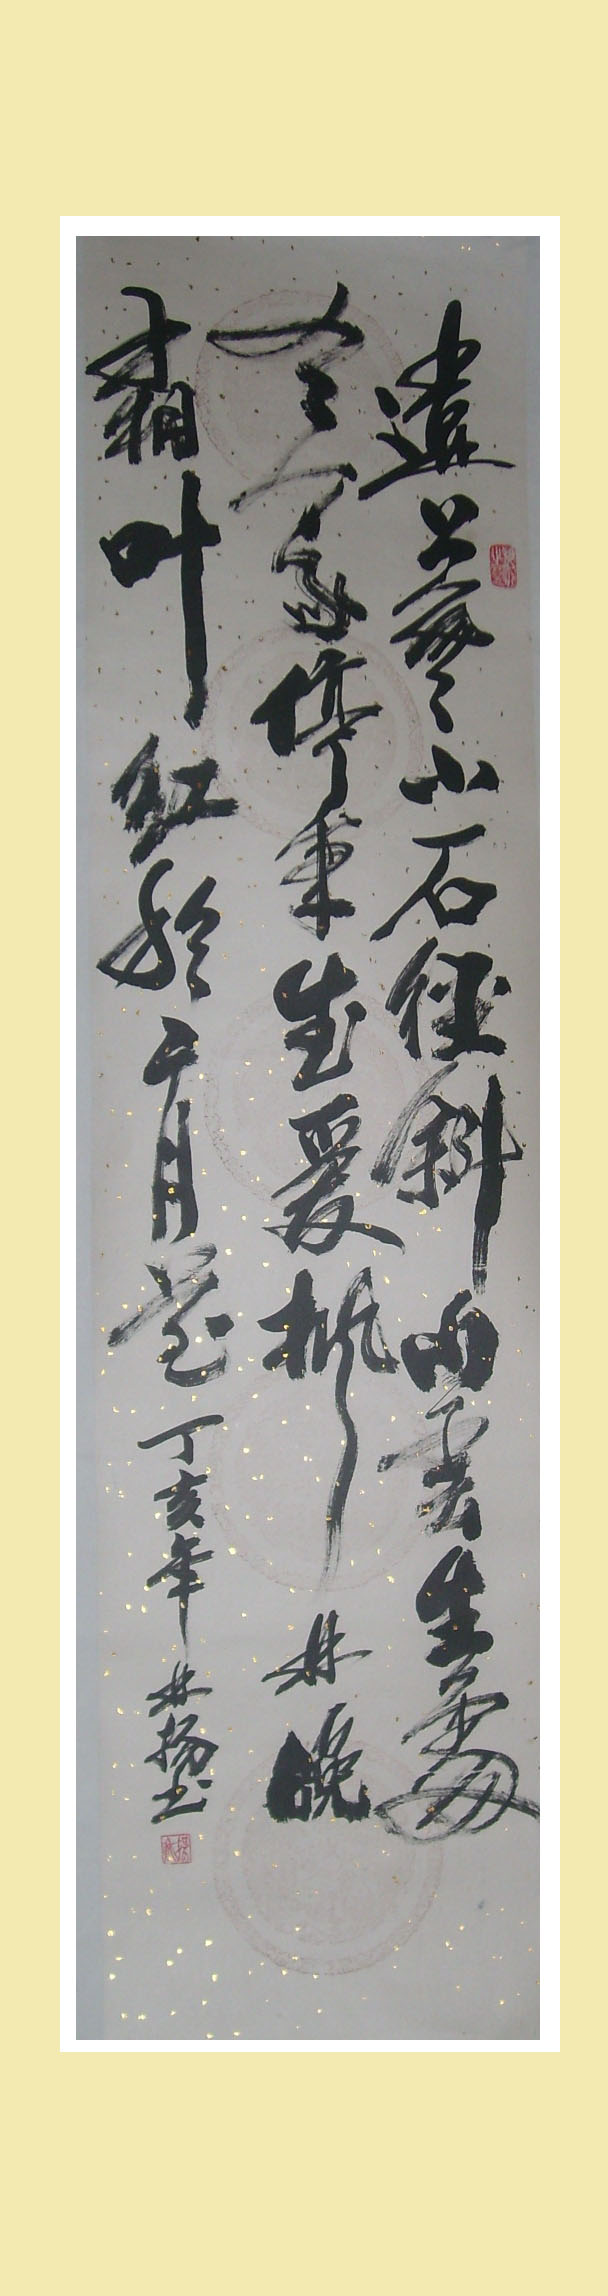 遠上寒山石徑斜白雲生處
有人家停車坐愛楓林晚
霜叶红於二月花丁亥年林扬书